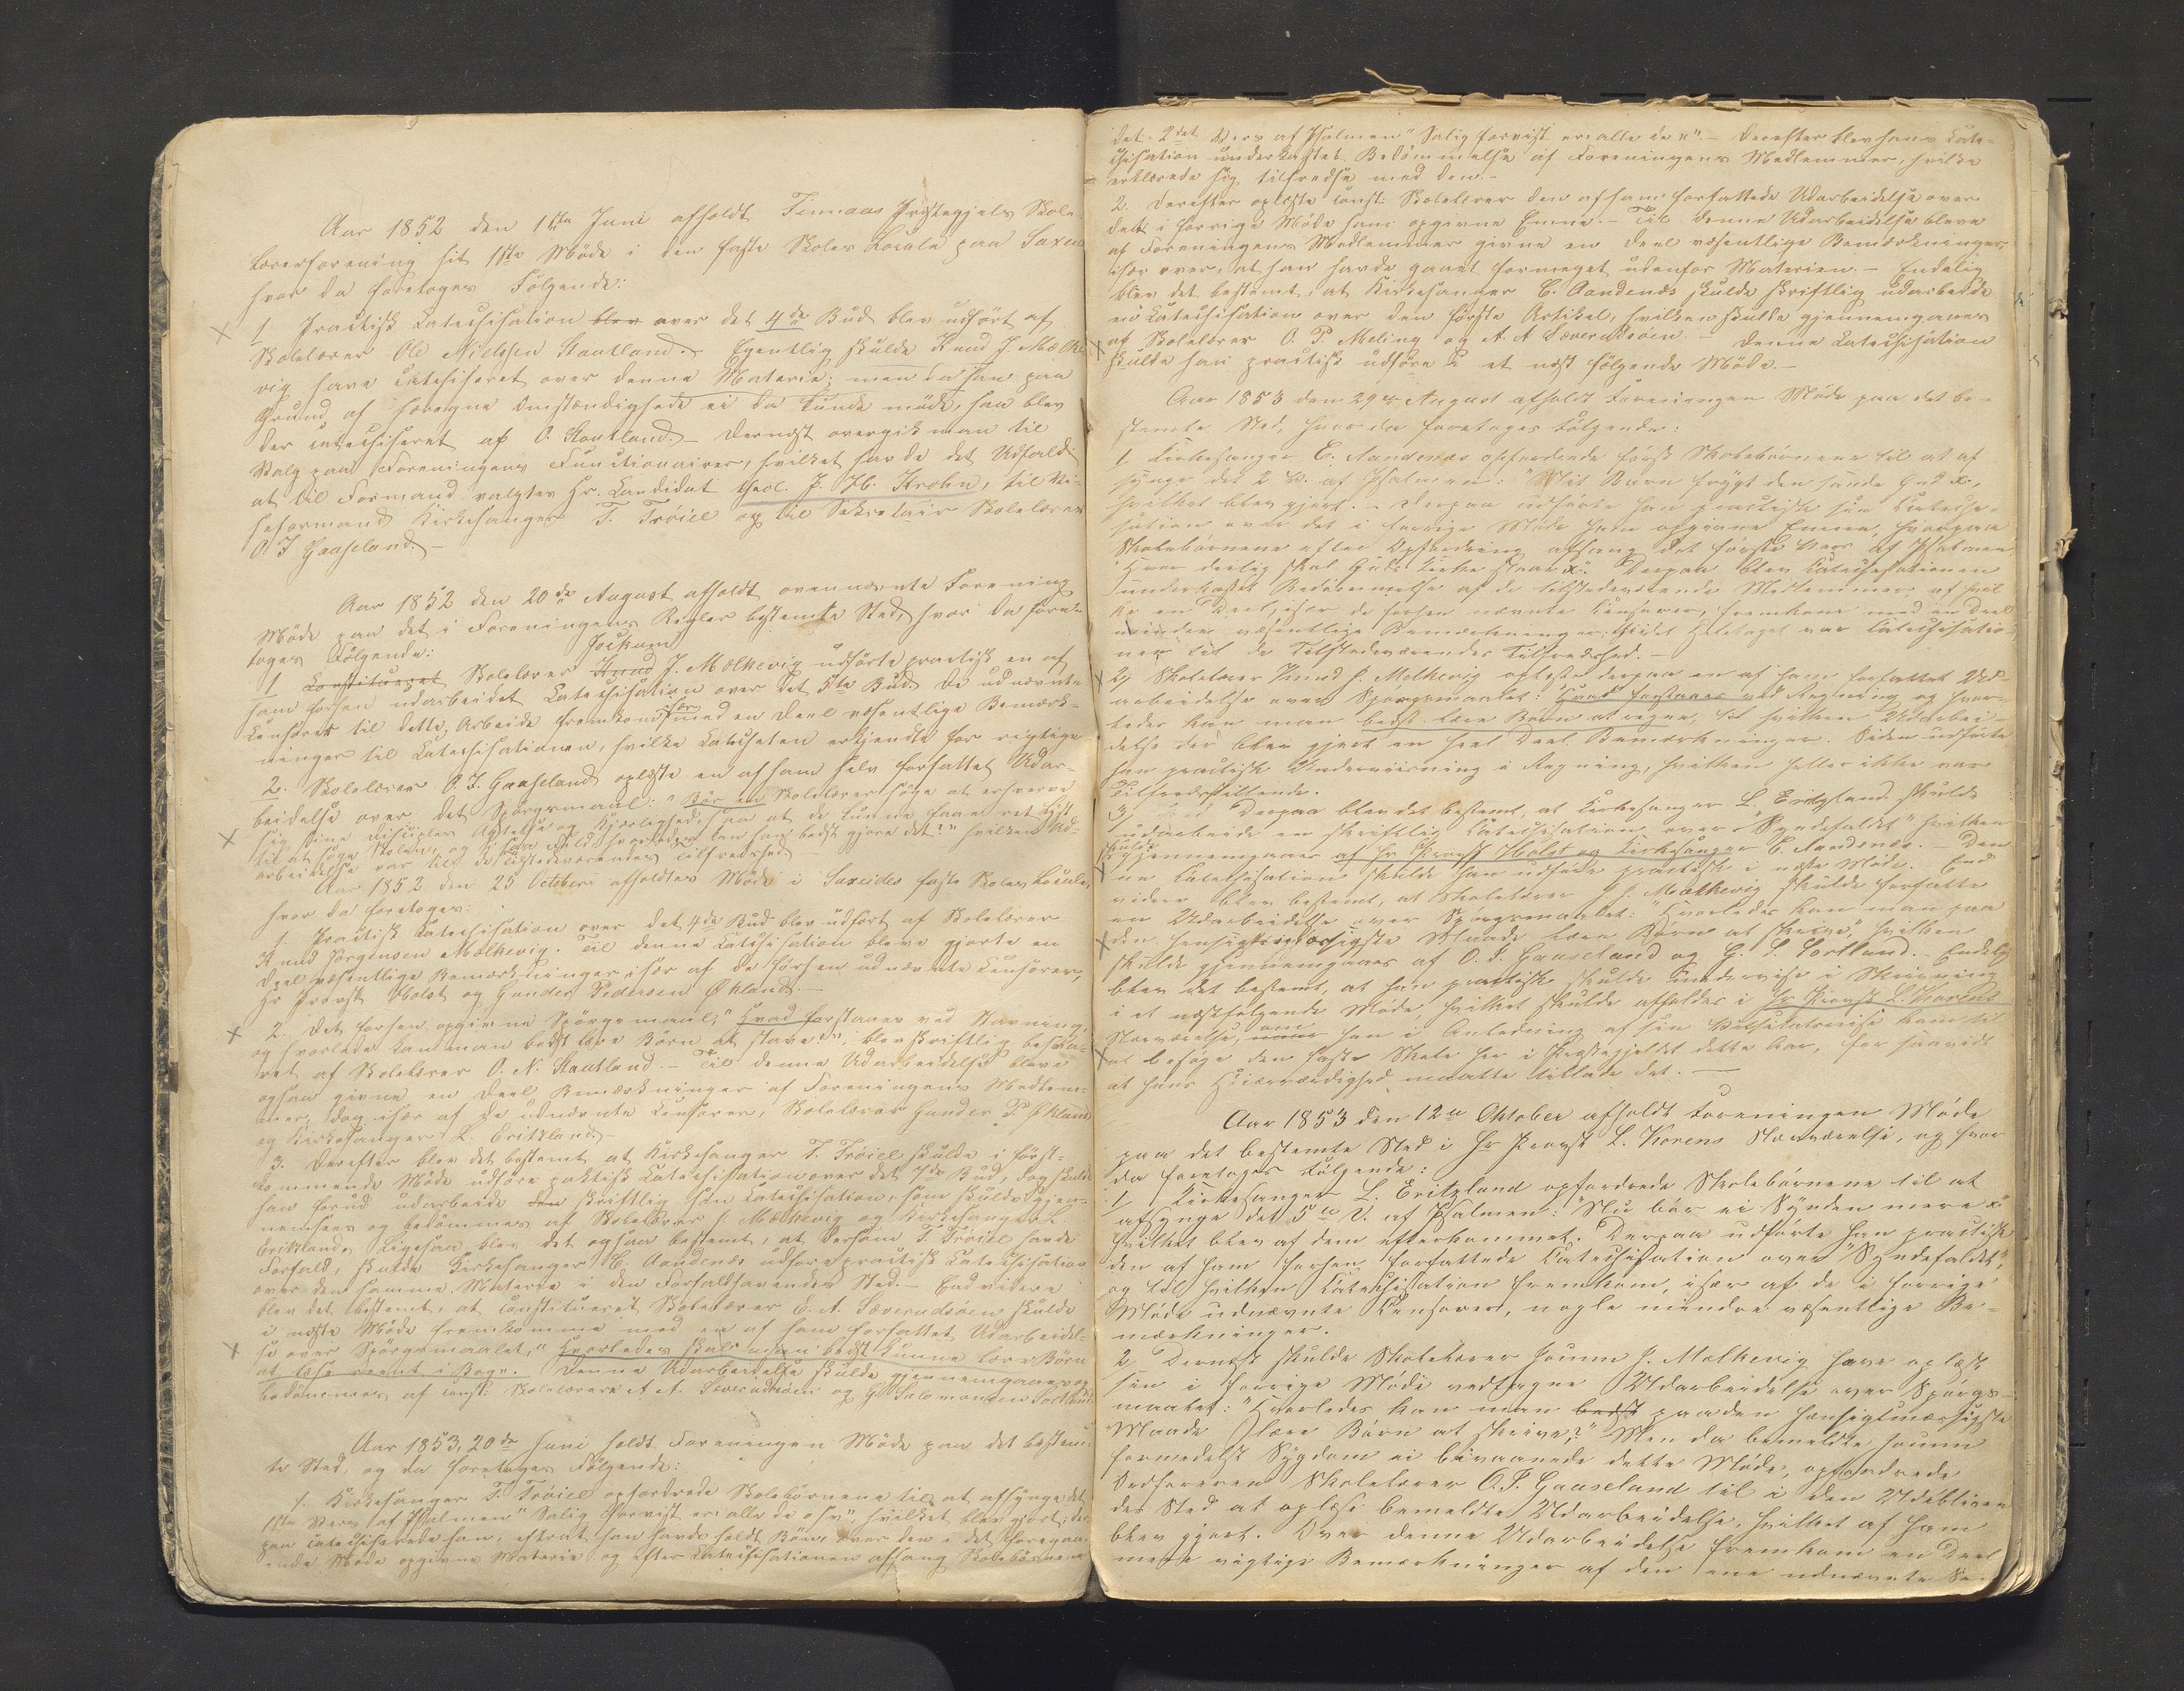 Aar 1852 den 1ste Juni afholdt Finnaas Præstegjelds Skole-
lærerforening sit 1ste Møde i den faste Skoles Locale paa Saxeid
hvor da foretoges Følgende:
1 Practisk Catechisation blev over det 4de Bud blev udført af
Skolelærer Ole Nielssen Stautland. Egentlig skulde Knud J. Mælke-
vig have catechiseret over denne Materie; men da han paa
Grund af Omstændigheder ei da kunde møde, saa blev
der catechiseret af O. Stautland. – Dernæst overgik man til
Valg paa Foreningens Functionairer, hvilket havde det Udfald:
at til Formand valgtes Hr. Candidat theol. J. Hb. Krohn, til Vi-
seformand Kirkesanger T. Trøiel og til Sekretair Skolelærer
O. J. Gaaseland. –
Aar 1852 den 20de August afholdt ovennævnte Forening
Møde paa det i Foreningens Regler bestemte Sted, hvor da fore-
toges Følgende:
Jockum
1 Constitueret Skolelærer Knud J. Mælkevig udførte practisk en af
ham forhen udarbeidet Catechisation over det 5te Bud. De udnævnte
Censorer til dette Arbeide fremkom især med en Deel væsentlige Bemærk-
ninger til Catechisationen, hvilke Catecheten erkjendte for rigtige
2. Skolelærer O. J. Gaaseland oplæste en af ham selv forfattet Udar-
beidelse over det Spørgsmaal: "Bør en Skolelærer søge at erhverve
sig sine Disciples Agtelse og Kjærlighed, saa at de kunne faae ret Lyst
til at søge Skolen, og i saa Fald hvorledes kan han bedst gjøre det?" hvilken Ud-
arbeidelse var til de Tilstedeværendes Tilfredshed
Aar 1852 den 25 October afholdtes Møde i Saxeides faste Skoles Locale,
hvor da foretoges:
1. Practisk Catechisation over det 4de Bud blev udført af Skolelærer
Knud Jørgensen Mælkevig. Til denne Catechisation bleve gjorte en
Deel væsentlige Bemærkninger, især af de forhen udnævnte Censorer,
Hr Provst Holst og Gunder Pedersen Økland. –
2. Det forhen opgivne Spørgsmaal: "Hvad forstaaes ved Stavning,
og hvorledes kan man bedst lære Børn at stave?", blev skriftlig besva-
ret af Skolelærer O. N. Stautland. – Til denne Udarbeidelse bleve
ogsaa givne en Deel Bemærkninger af Foreningens Medlem-
mer, dog især af de udnævnte Censorer, Skolelærer Gunder P. Økland
og Kirkesanger L. Eritzland. –
3. Derefter blev det bestemt at Kirkesanger T. Trøiel skulde i først-
kommende Møde udføre paktisk Catechisation over det 7de Bud, dog skulde
han forud udarbeide den skriftlig sin Catechisation, som skulde gjen-
nemsees og bedømmes af Skolelærer J. Mælkevig og Kirkesanger L.
Eritzland. Ligesaa blev det ogsaa bestemt, at dersom T. Trøiel havde
Forfald, skulde Kirkesanger E. Aandenæs udføre practisk Catechisation
over den samme Materie i den Forfaldhavendes Sted. – Endvidere
blev det bestemt, at constitueret Skolelærer E. A. Sæverudsøen skulde
i næste Møde fremkomme med en af ham forfattet Udarbeidel-
se over Spørgsmaalet, "Hvorledes skal man bedst kunne lære Børn
at læse reent i Bog". Denne Udarbeidelse skulde gjennemgaaes og
bedømmes af const: Skolelærere A. A. Sæverudsøen og G. Salomonsen Sortland
Aar 1853, 20de Juni holdt Foreningen Møde paa det bestem-
te Sted, og da foretoges Følgende:
1. Kirkesanger T. Trøiel opfordrede Skolebørnene til at afsynge det
1ste Vers af Psalmen "Salig forvist er alle de osv", hvilket blev gjort; der-
paa catechiserede han, efterat han havde holdt Bøn, over den i det foregaa-
ende Møde opgivne Materie og efter Catechisationen afsang Skolebørnene
det 2det Vers af Psalmen "Salig forvist er alle de"". – Derefter blev hans Cate-
chisation underkastet Bedømmelse af Foreningens Medlemmer, hvilke
erklærede sig tilfredse med den. –
2. Derefter oplæste const: Skolelærer den af ham forfattede Udarbeidelse over
det i forrige Møde ham opgivne Emne. – Til denne Udarbeidelse bleve
af Foreningens Medlemmer givne en Deel væsentlige Bemærkninger,
især over, at han havde gaaet formeget udenfor Materien. – Endelig
blev det bestemt, at Kirkesanger E. Aandenæs skulde skriftlig udarbeide
en Catechisation over den første Artikel, hvilken skulde gjennemgaaes
af Skolelærer O. P. Meling og A. A Sæverudsøen. – Denne Catechisation
skulde han practisk udføre i et næst følgende Møde. –
Aar 1853 den 29de August afholdt Foreningen Møde paa det be-
stemte Sted, hvor da foretoges Følgende:
1 Kirkesanger E. Aandenæs opfordrede først Skolebørnene til at af
synge det 2 V. af Psalmen: "Mit Barn frygt den sande Gud x.,
hvilket blev gjort. – Derpaa udførte han practisk sin Cateche-
sation over det i forrige Møde ham opgivne Emne, hvorpaa
Skolebørnene efter Opfordring afsang det første Vers af Psalmen
"Hvor deilig skal Guds Kirke staae x". Derpaa blev Catechesationen
underkastet Bedømmelse af de tilstedeværende Medlemmer, af hvil-
ke en Deel, især de forhen nævnte Censorer, fremkom med en Deel
mindre væsentlige Bemærkninger. I det Heletaget var Catechisatio-
nen til de Tilstedeværendes Tilfredshed. –
2, Skolelærer Knud J. Mælkevig oplæste derpaa en af ham forfattet Ud-
arbeidelse over Spørgsmaalet: Hvad forstaaes ved Regning og hvor-
ledes kan man bedst lære Børn at regne, til hvilken Udarbei-
delse der blev gjort en heel Deel Bemærkninger. Siden udførte
han practisk Underviisning i Regning, hvilken heller ikke var
Tilfredsstillende.
3, Derpaa blev det bestemt, at Kirkesanger L. Eritzland skulde
udarbeide en skriftlig Catechisation over "Syndefaldet" hvilken
skulde
gjennemgaaes af Hr Provst Holst og Kirkesanger E Aandenæs. – Den-
ne Catechisation skulde han udføre practisk i næste Møde. End
videre blev bestemt, at Skolelærer J J. Mælkevig skulde forfatte
en Udarbeidelse over Spørgsmaalet: "Hvorledes kan man paa
den hensigtsmæssigste Maade lære Børn at skrive", hvilken
skulde gjennemgaaes af O. J. Gaaseland og G. S. Sortland. – Endelig
blev det bestemt, at han practisk skulde undervise i Skrivning
i et næstfølgende Møde, hvilket skulde afholdes i Hr Provst L. Korens
Nærværelse, om han i Anledning af sin Visitatsreise kom til
at besøge den faste Skole her i Præstegjeldet dette Aar, for saavidt
at hans Høiærværdighed maatte tillade det. –
Aar 1853 den 12te Oktober afholdt Foreningen Møde
paa det bestemte Sted i Hr Provst L. Korens Nærværelse, og hvor
da foretoges Følgende:
1 Kirkesanger L. Eritzland opfordrede Skolebørnene til at
afsynge det 5te V. af Psalmen: "Nu bør ei Synden mere x"
hvilket blev af dem efterkommet. Derpaa udførte han practisk
den af ham forhen forfattede Catechisation over "Syndefaldet",
og til hvilken Catechisation fremkom, især af de i forrige
Møde udnævnte Censorer, nogle mindre væsentlige Be-
mærkninger.
2, Dernæst skulde Skolelærer Joumm J. Mælkevig have oplæst
sin i forrige Møde vedtagne Udarbeidelse over Spørgs-
maalet: "Hvorledes kan man bedst paa den hensigtsmæssigste
Maade lære Børn at skrive?" Men da bemeldte Joumm
formedelst Sygdom ei bivaanede dette Møde, opfordrede
Ordføreren Skolelærer O. J. Gaaseland til i den Udeblivendes
Sted at oplæse bemeldte Udarbeidelse, hvilket af ham
blev gjort. Over denne Udarbeidelse fremkom en Deel
mere vigtige Bemærkninger af den ene udnævnte